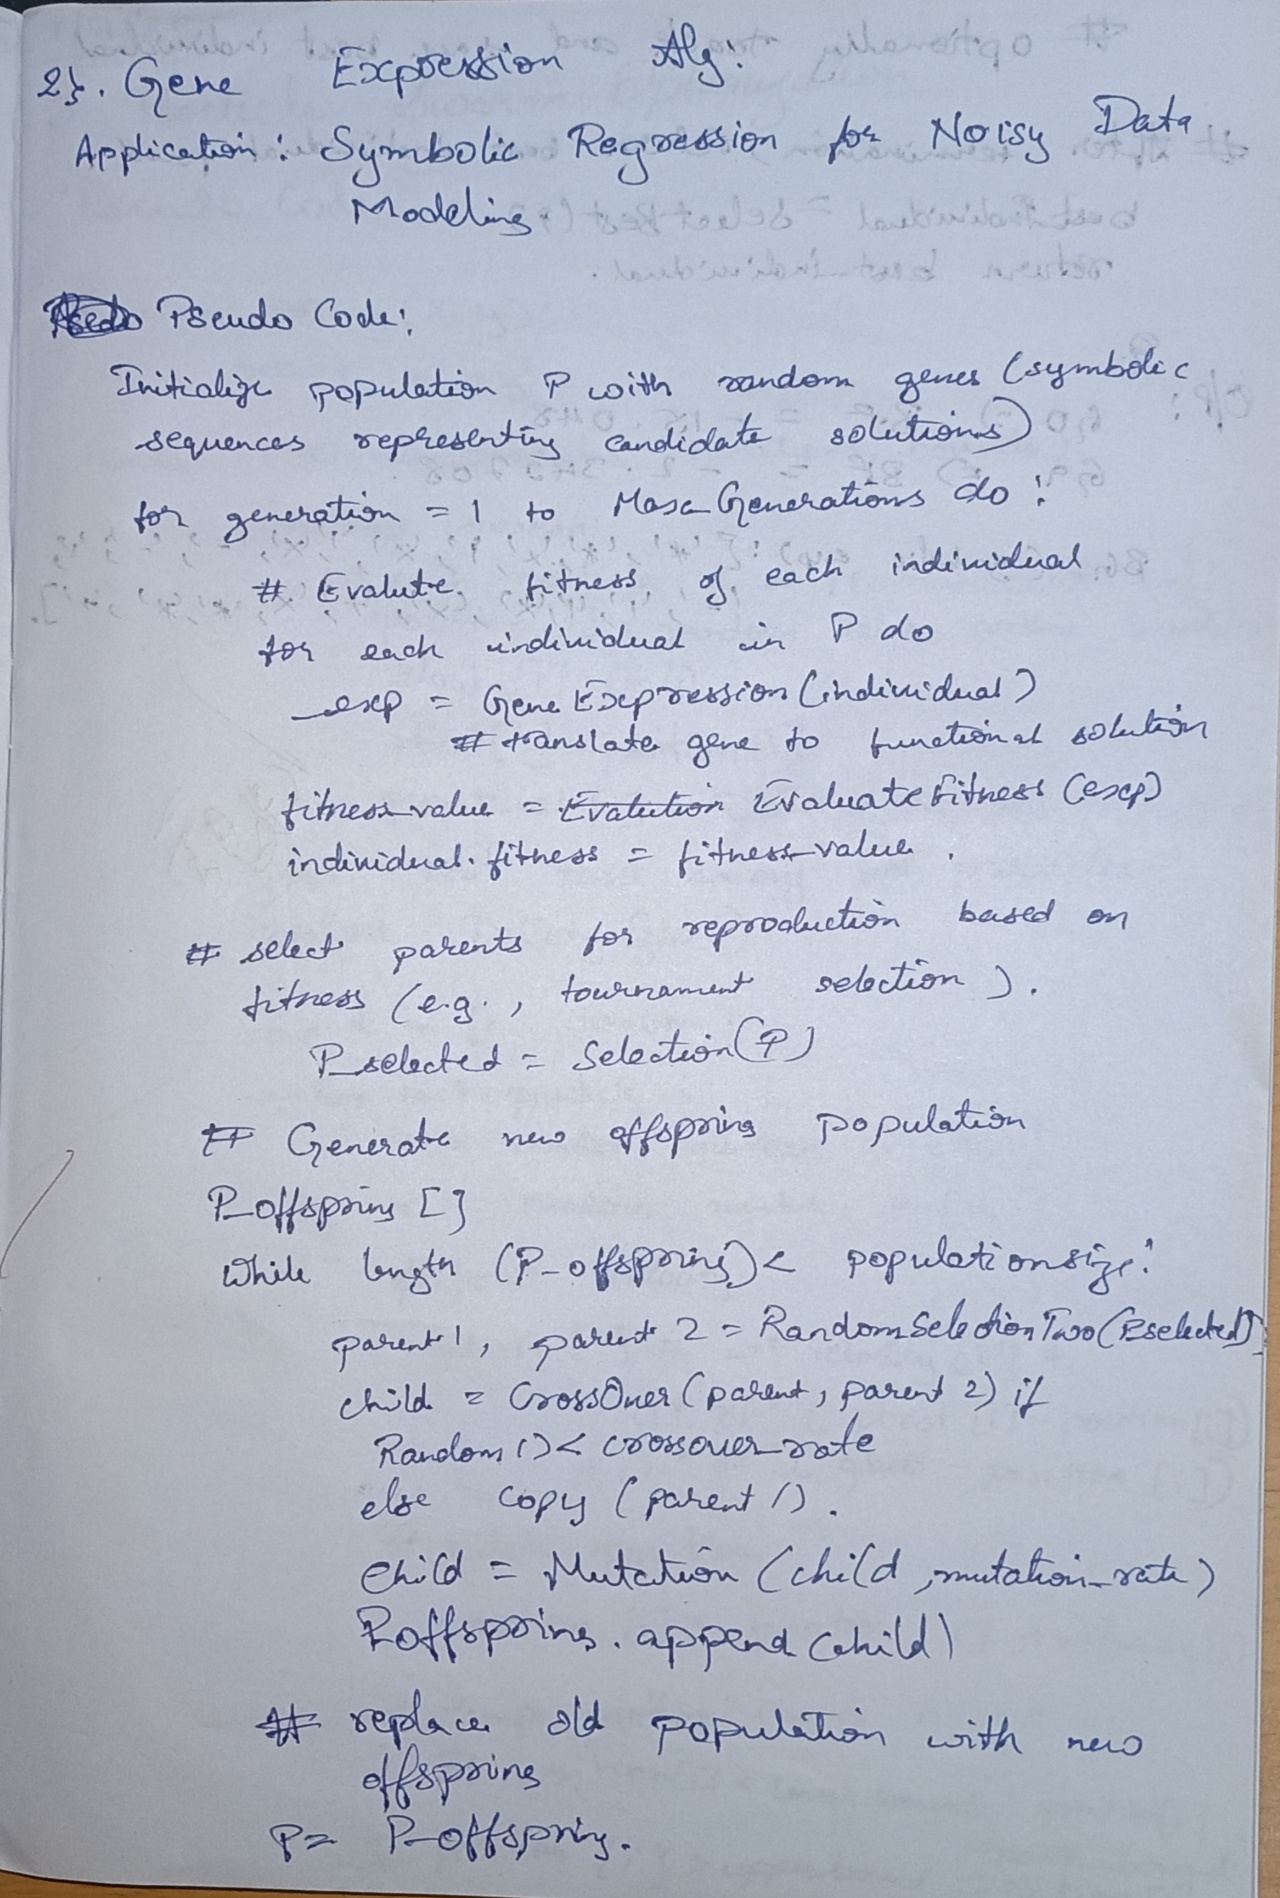 2}. Gene Expression Alg:
Application: Symbolic Regression for Noisy Data
Modeling
Pseudo Code:
Initialize population P with random genes (symbolic
sequences representing candidate solutions)
for generation = 1 to Max Generations do:
# Evalute fitness of each individual
for each individual in P do
exp = Gene Expression (individual)
# translate gene to functional solution
fitness_value = Evalution EvaluateFitness (exp)
individual. fitness = fitness_value.
# select parents for reproduction based on
fitness (e.g., tournament selection).
P_selected = Selection(P)
# Generate new offspring population
P_offspring []
while length (P_offspring) < populationsize:
parent 1, parent 2 = RandomSelectionTwo(Pselected)
child = CrossOver (parent, parent 2) if
Random () < crossover_rate
else copy (parent 1).
child = Mutation (child, mutation_rate)
P_offspring. append (child)
# replace old population with new
offspring
P = P_offspring.